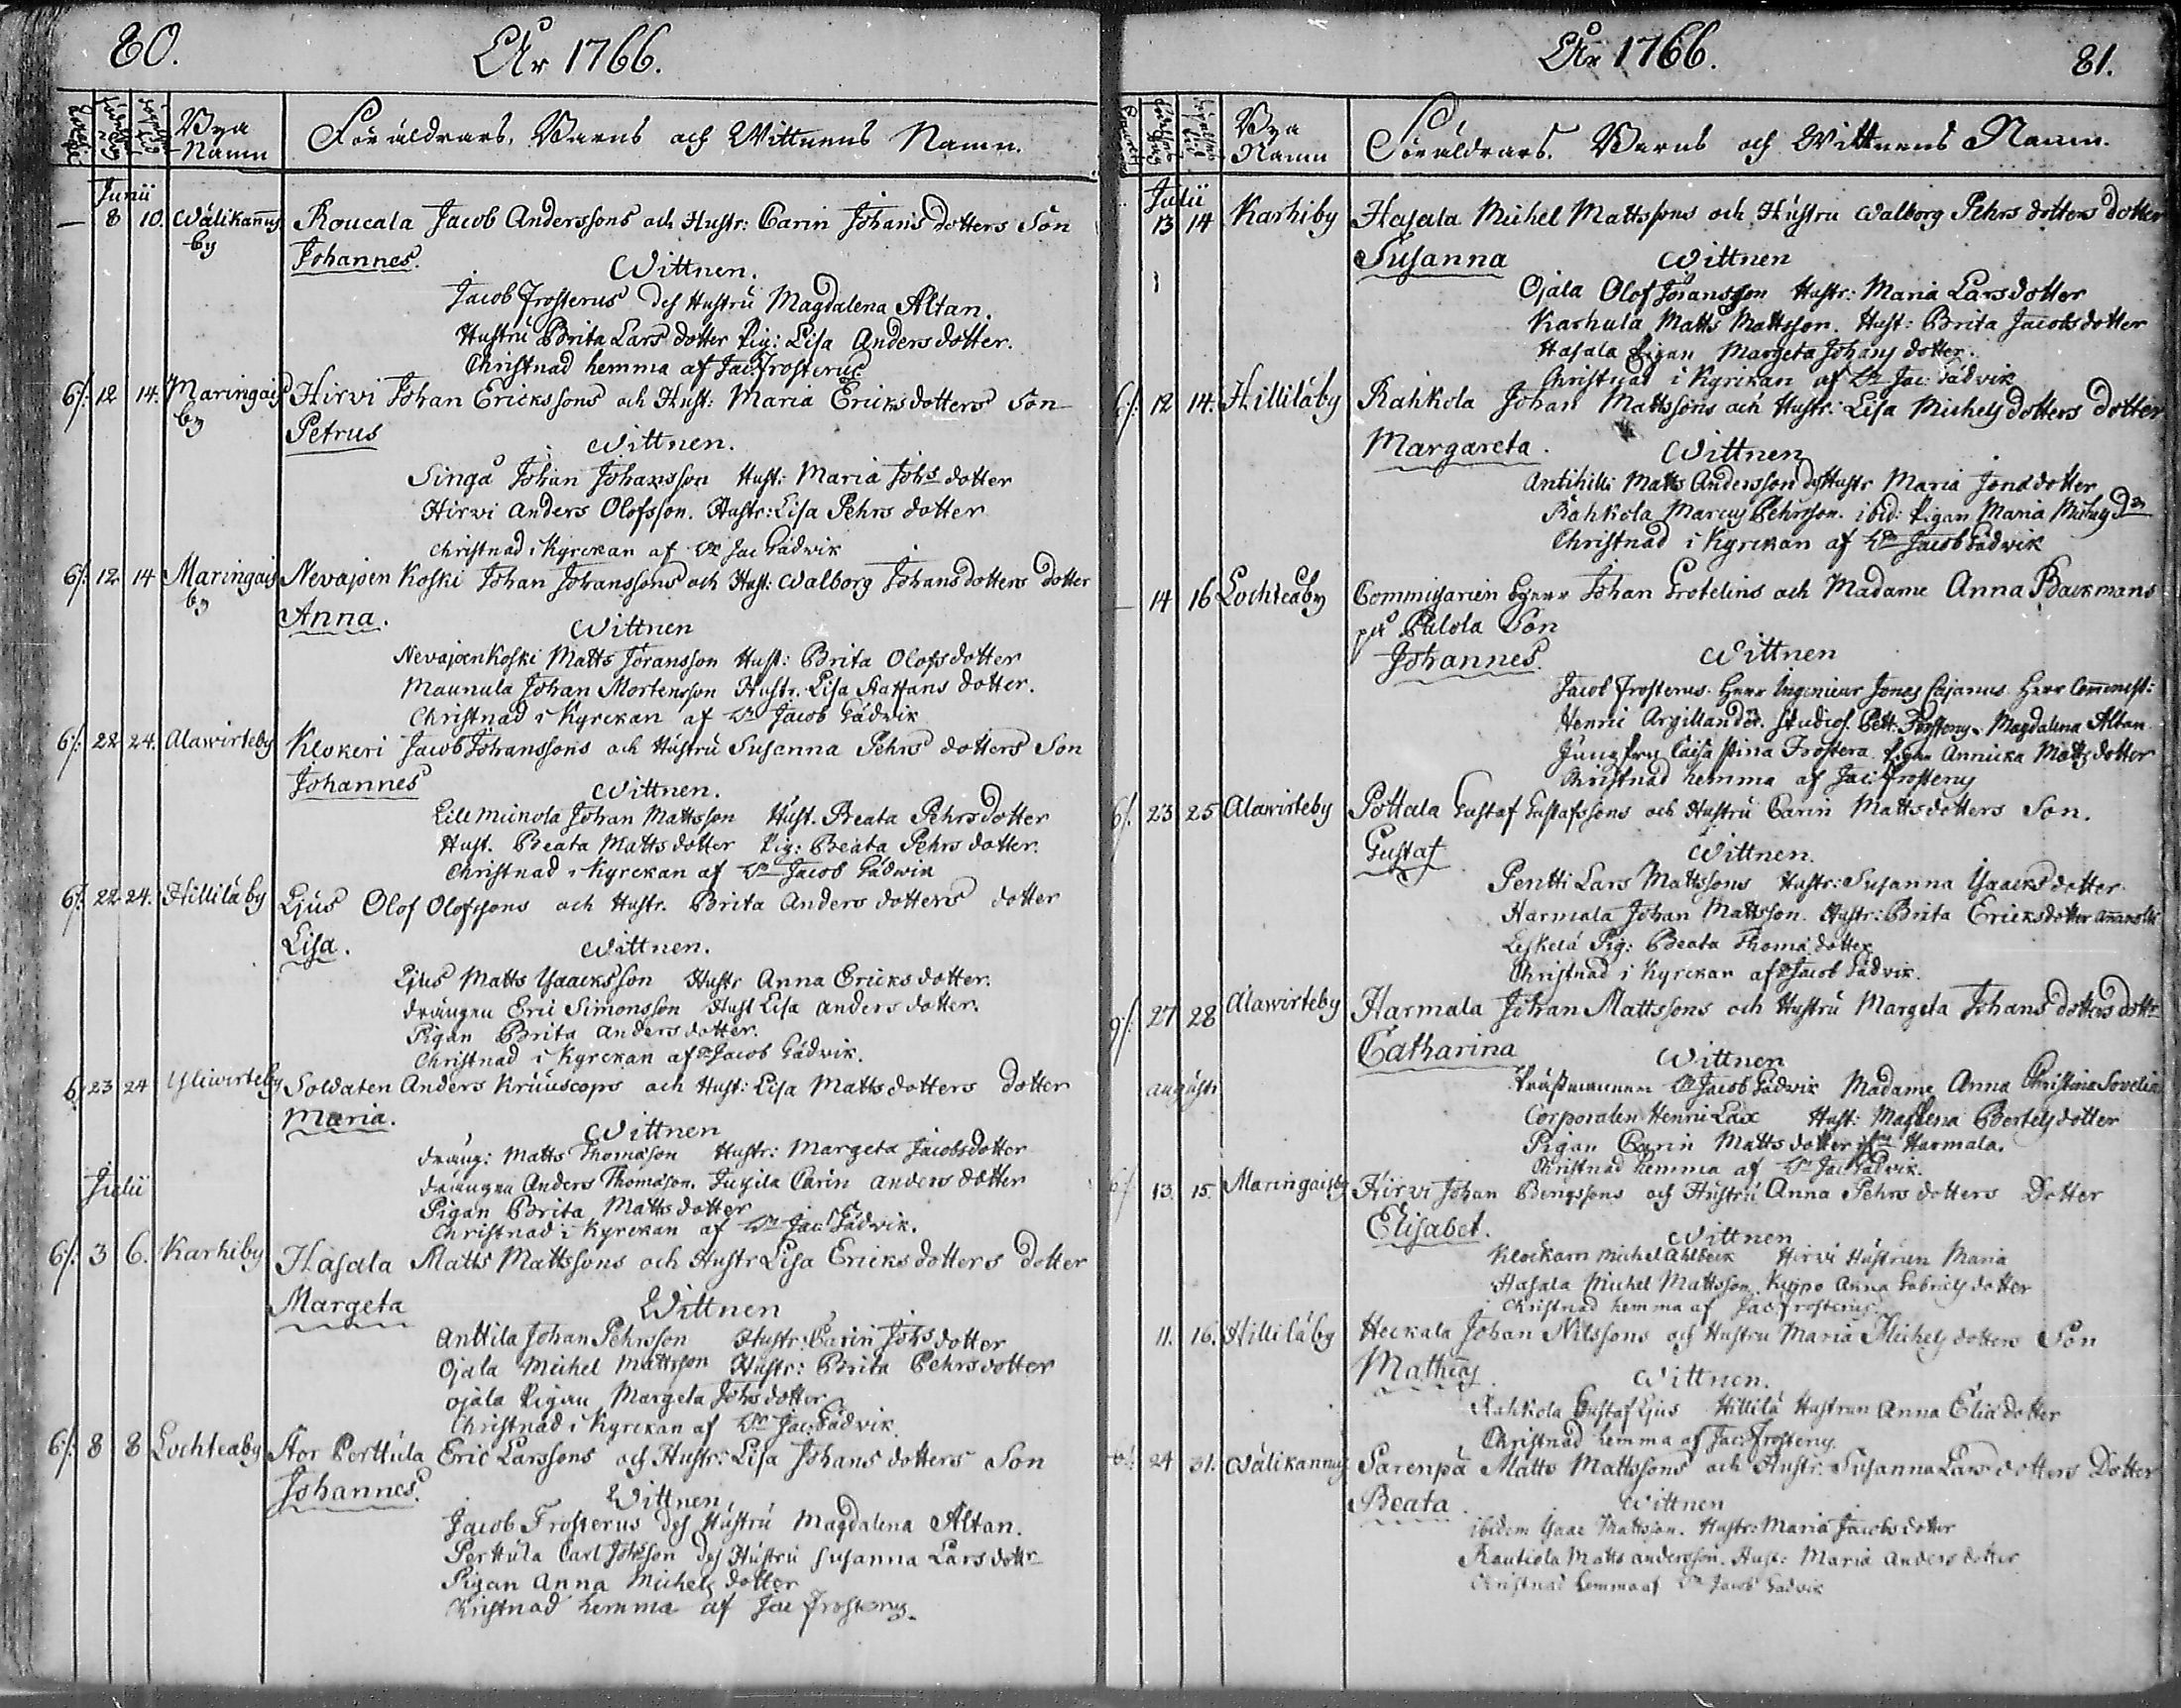 80.
År 1766.
Bya Namn
Föräldrars, Barns och Wittnens Namn.
Junii
— 8 10. Wälikannus by Roucala Jacob Anderssons och Hustr: Carin Johans dotters Son
Johannes. Wittnen.
Jacob Frosterus des Hustru Magdalena Altan.
Hustru Brita Lars dotter Pig: Lisa Anders dotter.
Christnad hemma af Jac: Frosterus
6/: 12 14. Maringais by Hirvi Johan Erickssons och Hust: Maria Ericks dotters Son
Petrus Wittnen.
Singå Johan Johansson Hust: Maria Johs dotter
Hirvi Anders Olofsson. Hustr: Lisa Pehrs dotter
Christnad i Kyrckan af Jac Gådvik
6/: 12 14 Maringais by Nevajoen Koski Johan Johanssons och Hust: Walborg Johans dotters dotter
Anna. Wittnen
Nevajoenkoski Matts Joransson Hust: Brita Olofsdotter
Maunula Johan Mortensson Hustr. Lisa Staffans dotter.
Christnad i Kyrckan af Jacob Gådvik
6/: 22 24. Alawirteby Klockeri Jacob Johanssons och Hustru Susanna Pehrs dotters Son
Johannes Wittnen.
Lillmunola Johan Mattsson Hust. Beata Pehrsdotter
Hust. Beata Matts dotter Pig: Beata Pehrs dotter.
Christnad i Kyrckan af Jacob Gådvik
6/: 22 24. Hillilä by Ljus Olof Olofssons och Hustr. Brita Anders dotters dotter
Lisa. Wittnen.
Ljus Matts Ysaacksson Hustr Anna Ericks dotter.
Drängen Eric Simonsson Hust Lisa anders dotter.
Pigan Brita anders dotter.
Christnad i Kyrckan af Jacob Gådvik.
6. 23 24 Yliwirteby Soldaten Anders Kruuscops och Hust: Lisa Matts dotters dotter
Maria. Wittnen
Dräng: Matts Thomasson Hustr: Margeta Jacobsdotter
Drängen Anders Thomasson. Carin anders dotter
Pigan Brita Matts dotter
Christnad i Kyrckan af Jac Gådvik.
Julii
6/: 3 6. Karhiby Hasala Matts Mattssons och Hustr Lisa Ericks dotters dotter
Margeta Wittnen
Anttila Johan Pehrsson Hustr: Carin Johs dotter
Ojala Michel Mattsson Hustr: Brita Pehrsdotter
Ojala Pigan Margeta Johs dotter
Christnad i Kyrckan af Jac: Gådvik
6/: 8 8 Lochteaby Stor Perttula Eric Larssons och Hustr: Lisa Johans dotters Son
Johannes. Wittnen
Jacob Frosterus des Hustru Magdalena Altan.
Perttula Carl Johsson des Hustru Susanna Lars dottr
Pigan Anna Michels dotter
Christnad hemma af Jac Frosterus.
År 1766.
81.
Bya Namn
Föräldrars. Barns och Wittnens Namn.
Julii
13 14 Karhiby Hasala Michel Mattssons och Hustru Walborg Pehrs dotters dotter
Susanna Wittnen
Ojala Olof Joransson Hustr: Maria Larsdotter
Karhula Matts Mattsson. Hust: Brita Jacobsdotter
Hasala Pigan Margeta Johans dotter.
Christnad i Kyrckan af Jac: Gådvik
6/: 12 14. Hilliläby Rahkola Johan Mattssons och Hustr: Lisa Michels dotters dotter
Margareta. Wittnen
Antihilli Matts Andersson des Hustr Maria Jonsdotter
Rahkola Marcus Pehrsson. ibid: Pigan Maria Michels Dr
Christnad i Kyrckan af Jacob Gådvik
— 14 16 Lochteaby Commissarien Herr Johan Grotelius och Madame Anna Backmans
på Palola Son
Johannes. Wittnen
Jacob Frosterus. Herr Ingenieur Jonas Cajanus Herr
Henric Argillander. Studios. Pett. Frosterus. Magdalena Altan
Jungfru Caisa Stina Frostera. Pigan Annicka Matts dotter
Christnad hemma af Jac: Frosterus
6/: 23 25 Alawirteby Pottala Gustaf Gustafssons och Hustru Carin Mattsdotters Son.
Gustaf Wittnen.
Pentti Lars Mattssons Hustr: Susanna Ysaacks dotter.
Harmala Johan Mattsson. Hustr: Brita Ericksdotter
Leskelä Pig: Beata Thoma dotter
Christnad i Kyrckan af Jacob Gådvik.
9/: 27 28 Alawirteby Harmala Johan Mattssons och Hustru Margeta Johans dotters dottr
Catharina Wittnen
Jacob Gådvik Madame Anna Christina Sovelia
Corporalen Henric Lax Hust: Maglena Bertels dotter
Pigan Carin Matts dotter Harmala.
Christnad hemma af Jac Gådvik.
augusti
6/: 13. 15. Maringaisby Hirvi Johan Bengssons och Hustru Anna Pehrs dotters Dotter
Elisabet. Wittnen
Klockarn Michel Ahlbeck Hirvi Hustrun Maria
Hasala Michel Mattsson. Anna Gabriels dotter
Christnad hemma af Jac: Frosterus.
11. 16. Hilliläby Heckala Johan Nilssons och Hustru Maria Michels dotters Son
Mathias. Wittnen.
Rahkola Gustaf Ljus Hillilä Hustrun Anna Elia dotter
Christnad hemma af Jac: Frosterus.
6/: 24 31. Wälikannus Sarenpä Matts Mattssons och Hustr: Susanna Lars dotters Dotter
Beata. Wittnen
ibidem Ysaac Mattsson. Hustr: Maria Jacobs dotter
Rautiola Matts andersson. Hust: Maria anders dotter
Christnad hemma af Jacob Gadvik